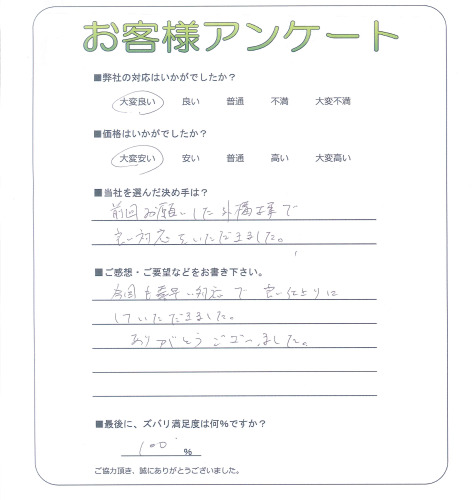 お客様アンケート
■弊社の対応はいかがでしたか？
大変良い 良い 普通 不満 大変不満
■価格はいかがでしたか？
大変安い 安い 普通 高い 大変高い
■当社を選んだ決め手は？
前回お願いした外構工事で
良い対応をいただきました。
■ご感想・ご要望などをお書き下さい。
今回も素早い対応で良い仕上りに
していただきました。
ありがとうございました。
■最後に、ズバリ満足度は何％ですか？
100 %
ご協力頂き、誠にありがとうございました。